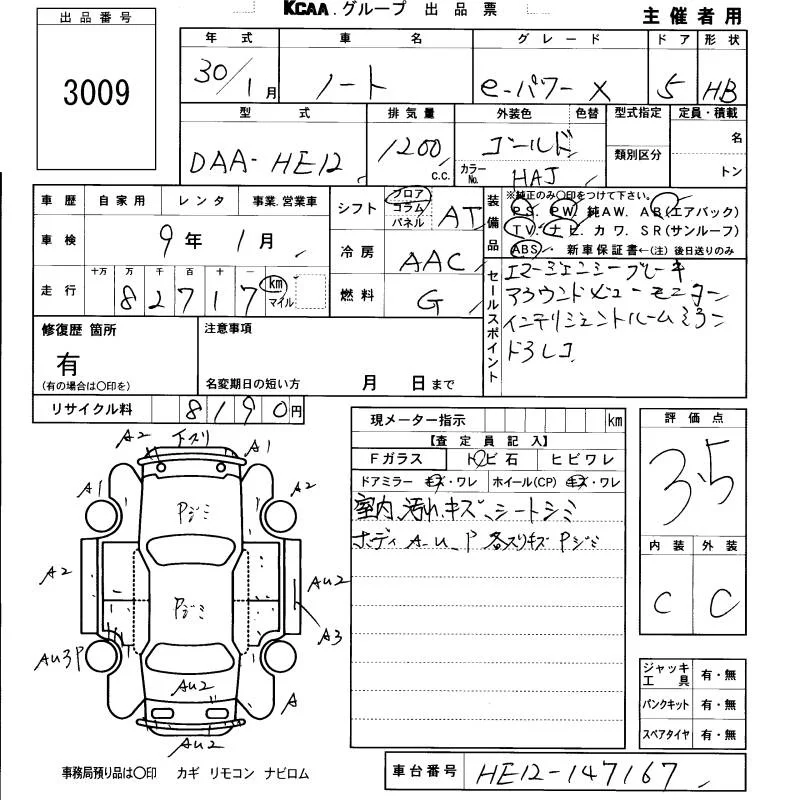 KCAA.グループ 出品票
主催者用
出品番号
3009
年式 車名 グレード ドア 形状
30/1月 ノート e-パワー X 5 HB
型式 排気量 外装色 色替 型式指定 定員・積載
DAA-HE12 1200 c.c. ゴールド 類別区分 名
カラーNo. HAJ トン
車歴 自家用 レンタ 事業.営業車
シフト フロア コラム パネル AT
装備品 ※純正のみ〇印をつけて下さい。
PS. PW. 純AW. AB(エアバック)
TV. ナビ. カワ. SR(サンルーフ)
ABS. 新車保証書←(注) 後日送りのみ
車検 9年 1月
冷房 AAC
走行 十万 万 千 百 十 一 km マイル
8 2 7 1 7
燃料 G
セールスポイント
エマージェンシーブレーキ
アラウンドビューモニター
インテリジェントルームミラー
ドラレコ
修復歴 箇所
有
(有の場合は〇印を)
注意事項
名変期日の短い方 月 日まで
リサイクル料 8190円
現メーター指示 km
【査定員記入】
Fガラス トビ石 ヒビワレ
ドアミラー キズ・ワレ ホイール(CP) キズ・ワレ
室内、汚れ、キズ、シートシミ
ボディ A-U、P 各スリキズ Pジミ
評価点
3.5
内装 外装
C C
A2 下スリ A1
A1 Pジミ A2
A2 AU2
Pジミ
A3
AU3P
AU2 A
AU2
ジャッキ工具 有・無
パンクキット 有・無
スペアタイヤ 有・無
事務局預り品は〇印 カギ リモコン ナビロム
車台番号 HE12-147167